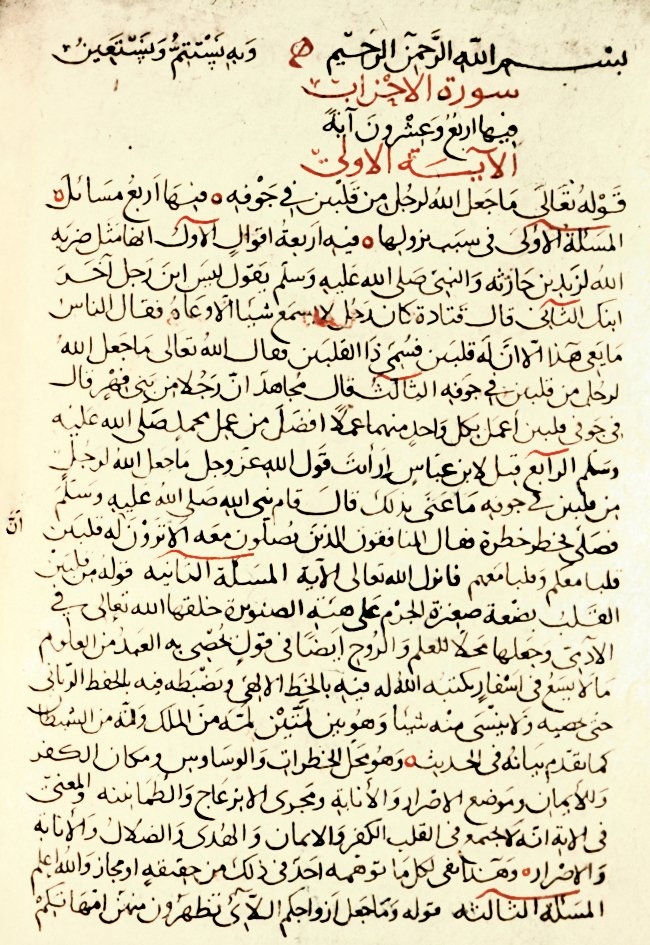 بسم الله الرحمن الرحيم وبه نستتم وبه نستعين
سورة الاحزاب
فيها اربع وعشرون آية
الآية الاولى
قوله تعالى ما جعل الله لرجل من قلبين في جوفه فيها اربع مسائل
المسئلة الاولى في سبب نزولها فيه اربعة اقوال الاول انها مثل ضربه
الله لزيد بن حارثه والنبي صلى الله عليه وسلم يقول ليس ابن رجل آخر
ابنك الثاني قال قتادة كان رجل لا يسمع شيئا الا وعاه فقال الناس
ما يعي هذا الا ان له قلبين فسمي ذا القلبين فقال الله تعالى ما جعل الله
لرجل من قلبين في جوفه الثالث قال مجاهد ان رجلا من بني فهر قال
في جوفي قلبين اعمل بكل واحد منهما عملا افضل من عمل محمد صلى الله عليه
وسلم الرابع قيل لابن عباس ارايت قول الله عز وجل ما جعل الله لرجل
من قلبين في جوفه ما عنى بذلك قال قام نبي الله صلى الله عليه وسلم
فصلى فخطر خطرة فقال المنافقون الذين يصلون معه الا ترون له قلبين
ان
قلبا معكم وقلبا معهم فانزل الله تعالى الآية المسئلة الثانيه قوله من قلبين
القلب بضعة صغيرة الجرم على هيئة الصنوبرة خلقها الله تعالى في
الآدمي وجعلها محلا للعلم والروح ايضا في قول يحصي به العبد من العلوم
ما لا يسع في اسفار يكتبه الله له فيه بالخط الالهي ويضبطه فيه بالحفظ الرباني
حتى يحصيه ولا ينسى منه شيئا وهو بين لمتين لمة من الملك ولمة من الشيطان
كما تقدم بيانه في الحديث وهو محل الخطرات والوساوس ومكان الكفر
والايمان وموضع الاصرار والانابة ومجرى الانزعاج والطمانينه والمعنى
في الاية انه لا يجتمع في القلب الكفر والايمان والهدى والضلال والانابة
والاصرار وهذا نفي لكل ما توهمه احد في ذلك من حقيقة او مجاز والله اعلم
المسئلة الثالثه قوله وما جعل ازواجكم اللائي تظهرون منهن امهاتكم